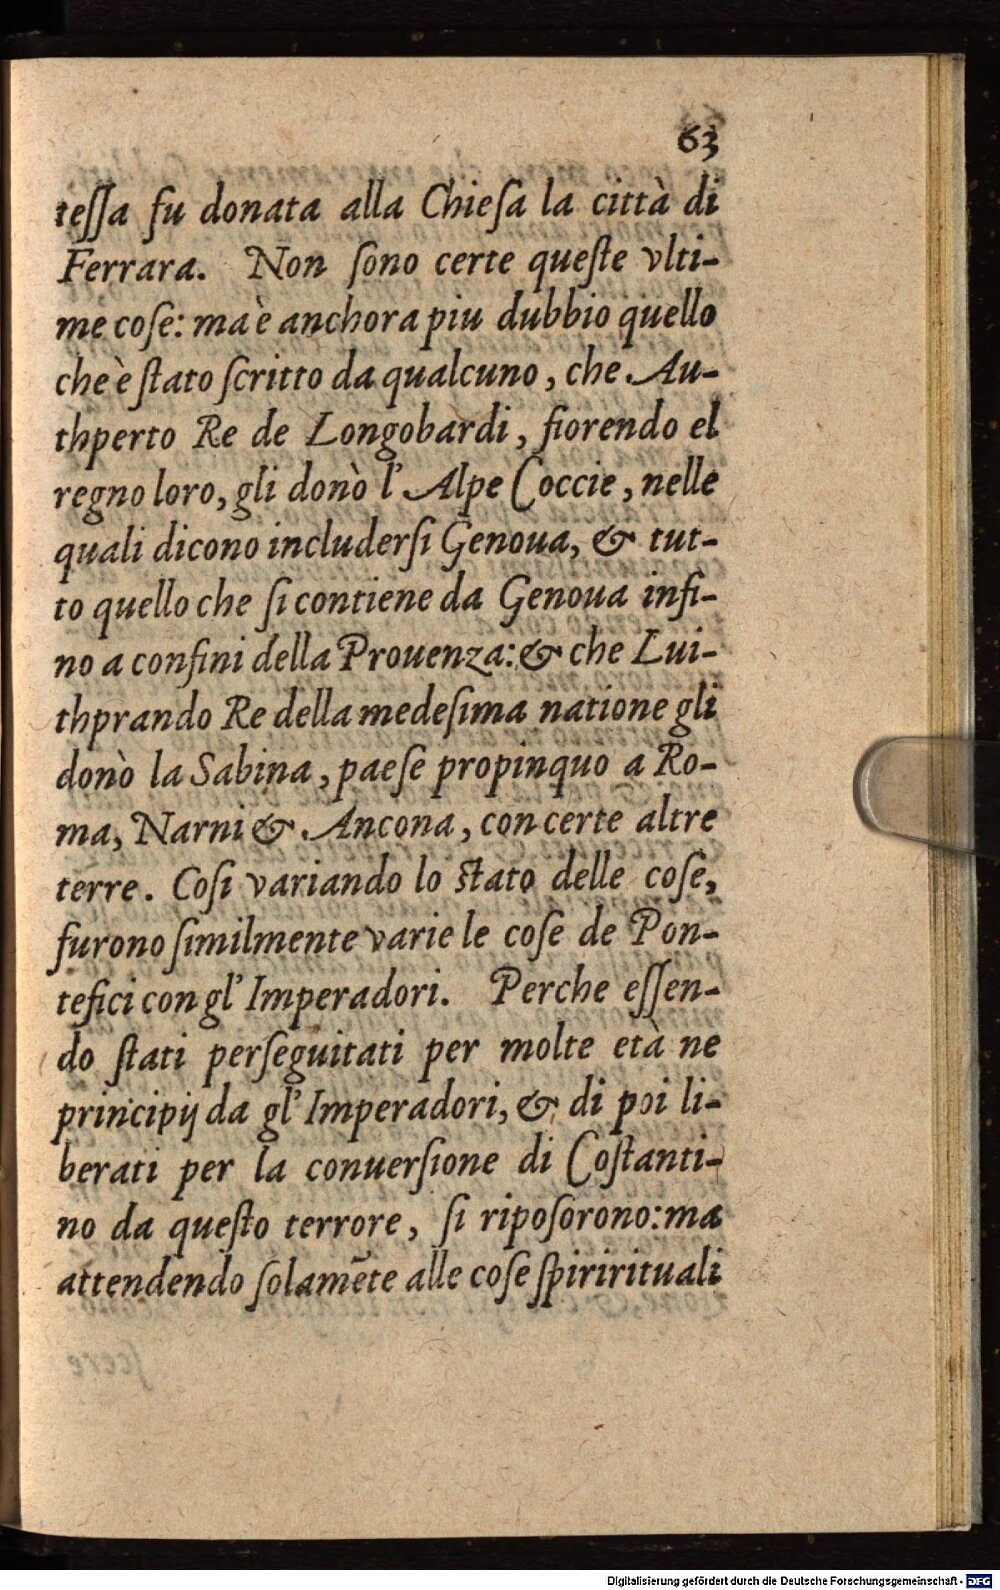 63
teſſa fu donata alla Chieſa la città di
Ferrara. Non ſono certe queſte vlti-
me coſe: ma è anchora piu dubbio quello
che è ſtato ſcritto da qualcuno, che Au-
thperto Re de Longobardi, fiorendo el
regno loro, gli donò l' Alpe Coccie, nelle
quali dicono includerſi Genoua, & tut-
to quello che ſi contiene da Genoua infi-
no a confini della Prouenza: & che Lui-
thprando Re della medeſima natione gli
donò la Sabina, paeſe propinquo a Ro-
ma, Narni & Ancona, con certe altre
terre. Coſi variando lo ſtato delle coſe,
furono ſimilmente varie le coſe de Pon-
tefici con gl' Imperadori. Perche eſſen-
do ſtati perſeguitati per molte età ne
principij da gl' Imperadori, & di poi li-
berati per la conuerſione di Coſtanti-
no da queſto terrore, ſi ripoſorono: ma
attendendo ſolamēte alle coſe ſpiriritua​li
Digitalisierung gefördert durch die Deutsche Forschungsgemeinschaft - DFG